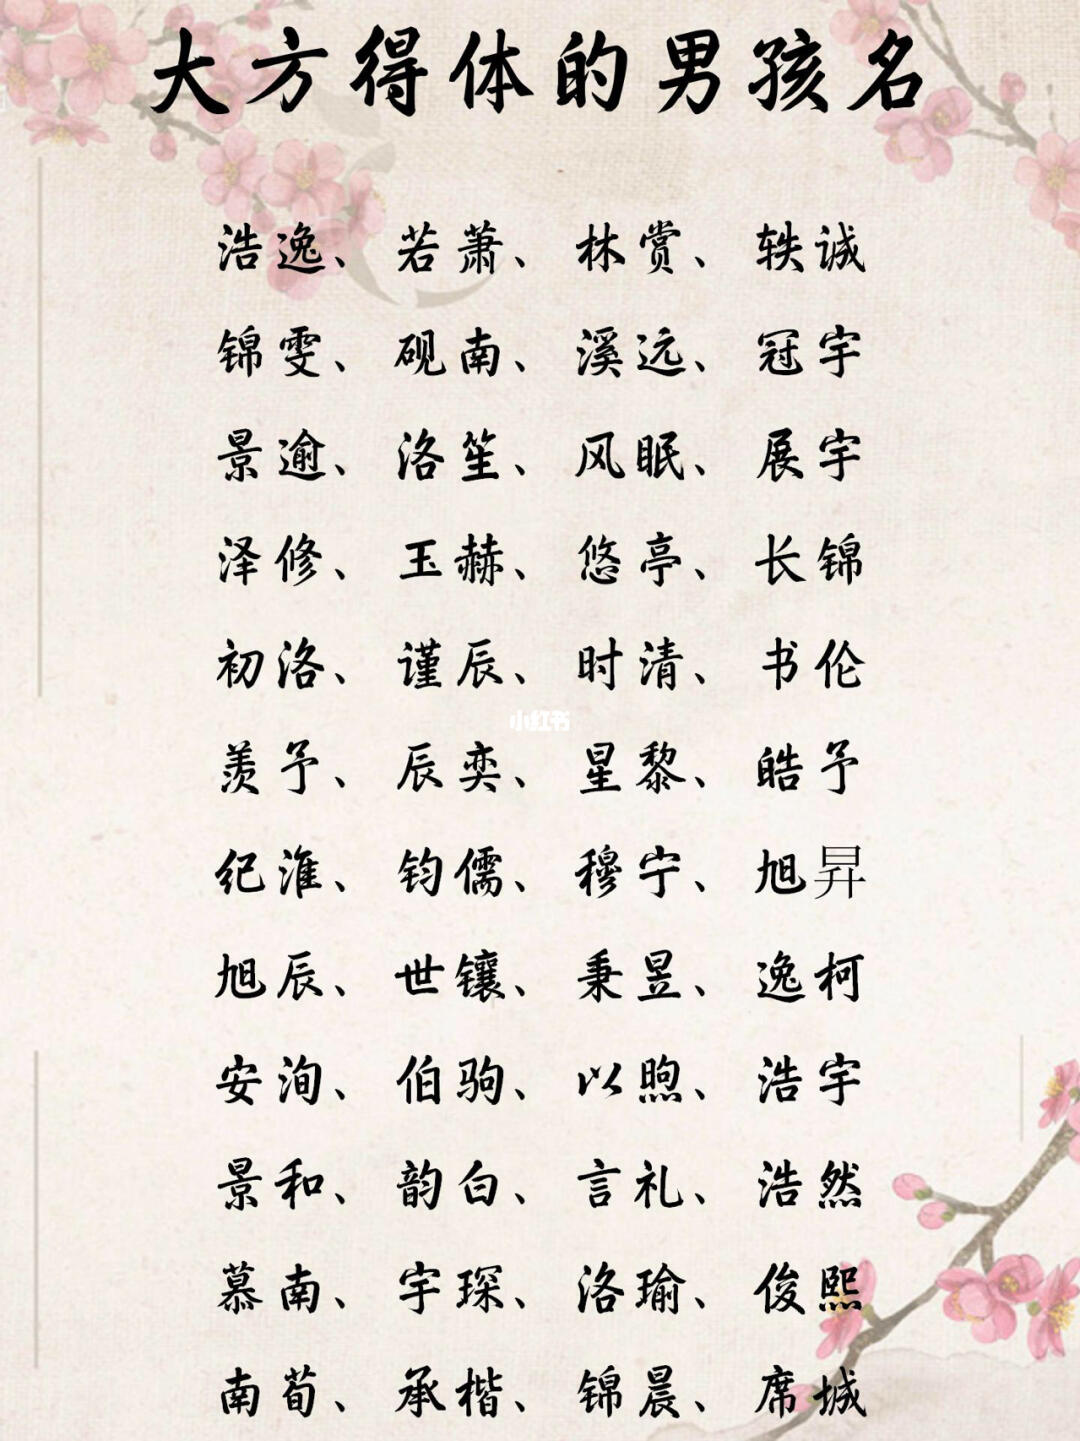 大方得体的男孩名
浩逸、若萧、林赏、轶诚
锦雯、砚南、溪远、冠宇
景逾、洛笙、风眠、展宇
泽修、玉赫、悠亭、长锦
初洛、谨辰、时清、书伦
小红书
羡予、辰奕、星黎、皓予
纪淮、钧儒、穆宁、旭昇
旭辰、世镶、秉昱、逸柯
安洵、伯驹、以煦、浩宇
景和、韵白、言礼、浩然
慕南、宇琛、洛瑜、俊熙
南荀、承楷、锦晨、席城